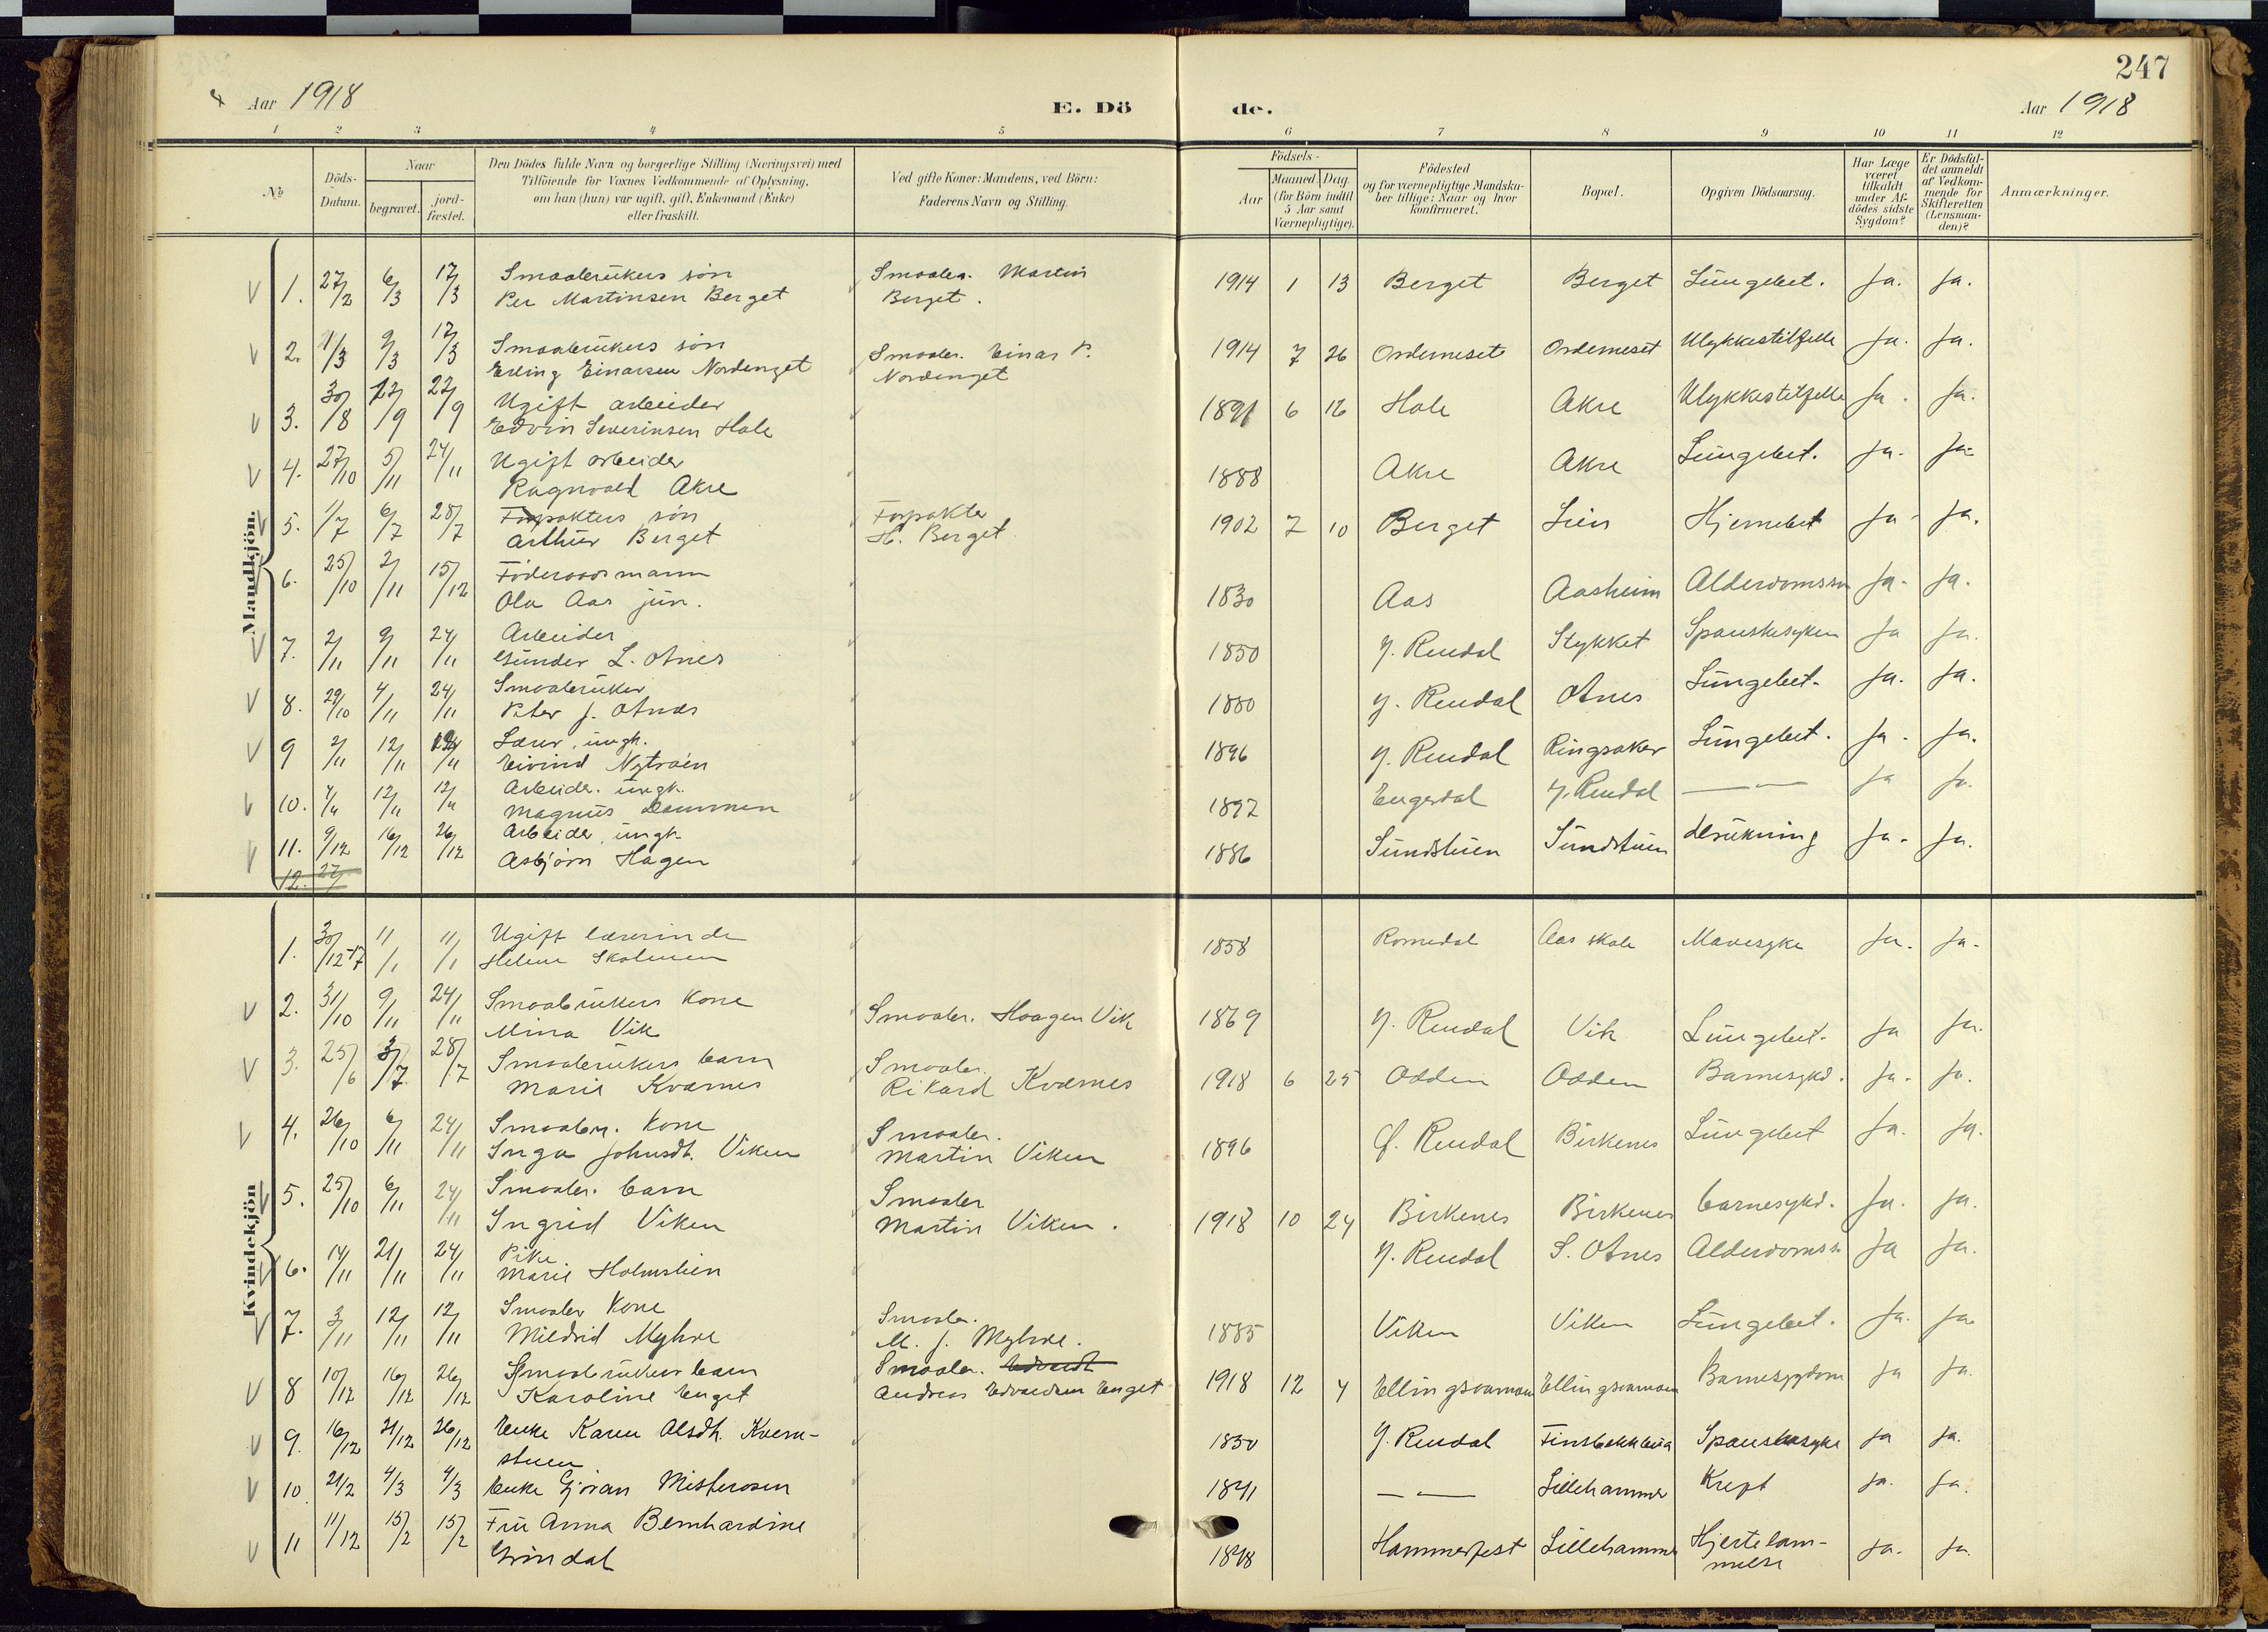 247
Aar 1918
E. Dö de.
Aar 1918
1 2 3 4 5 6 7 8 9 10 11 12
No
Döds-Datum.
Naar
begravet.
jord-fæstet.
Den Dödes fulde Navn og borgerlige Stilling (Næringsvei) med
Tilföiende for Voxnes Vedkommende af Oplysning,
om han (hun) var ugift, gift, Enkemand (Enke)
eller fraskilt.
Ved gifte Koner: Mandens, ved Börn:
Faderens Navn og Stilling.
Födsels-
Aar
Maaned. Dag.
(for Börn indtil
5 Aar samt
Værnepligtige).
Födested
og for værnepligtige Mandska-
ber tillige: Naar og hvor
konfirmeret.
Bopæl.
Opgiven Dödsaarsag.
Har Læge
været
tilkaldt
under Af-
dödes sidste
Sygdom?
Er Dödsfal-
det anmeldt
af Vedkom-
mende for
Skifteretten
(Lensman-
den)?
Anmærkninger.
Mandkjön.
1. 27/2 6/3 17/3 Smaabrukers sön Smaabr. Martin 1914 1 13 Berget Berget Lungebet. Ja. Ja.
Per Martinsen Berget Berget.
2. 1/3 9/3 17/3 Smaabrukers sön Smaabr. Einar P. 1914 7 26 Ordemeset Ordemeset Ulykkestilfelle Ja. Ja.
Erling Einarsen Nordenget Nordenget
3. 30/8 22/9 Ugift arbeider 1891 6 16 Hole Akre Ulykkestilfelle Ja. Ja.
Edvin Severinsen Hole
4. 27/10 5/11 24/11 Ugift arbeider 1888 Akre Akre Lungebet. Ja. Ja.
Ragnvald Akre
5. 1/7 6/7 28/7 Forpakters sön Forpakter 1902 7 10 Berget Lien Hjernebet Ja. Ja.
Arthur Berget H. Berget
6. 25/10 2/11 15/12 Föderaadsmann 1830 Aas Aasheim Alderdomssv Ja. Ja.
Ola Aas jun.
7. 2/11 9/11 24/11 Arbeider 1850 Y. Rendal Stykket Spanskesyken Ja Ja.
Gunder L. Otnes
8. 29/10 4/11 24/11 Smaabruker 1880 Y. Rendal Otnes Lungebet. Ja. Ja.
Peter J. Otnes
9 2/11 12/11 Lærer, ungk. 1896 Y. Rendal Ringsaker Lungebet. Ja. Ja.
Eivind Nytröen
10. 12/11 12/11 Arbeider. ungk. 1892 Engerdal Y. Rendal — — Ja Ja.
Magnus Dammen
11. 9/12 16/12 26/12 Arbeider, ungk. 1886 Sundstuen Sundstuen drukning Ja. Ja.
Asbjörn Hagen
12. 27/
Kvindekjön
1. 30/12-17 11/1 11/1 Ugift lærerinde 1858 Romedal Aas skole Mavesyke Ja. Ja.
Helene Skolmen
2. 31/10 9/11 24/11 Smaabrukers Kone Smaabr. Haagen Vik 1869 Y. Rendal Vik Lungebet. Ja Ja.
Mina Vik
3. 25/6 3/7 28/7 Smaabrukers barn Smaabr. 1918 6 25 Odden Odden Barnesykd. Ja. Ja.
Marie Kværnes Rikard Kværnes
4. 26/10 6/11 24/11 Smaabr. Kone Smaabr. 1896 Ö. Rendal Birkenes Lungebet Ja. Ja.
Inga Johnsdt. Viken Martin Viken
5. 25/10 6/11 24/11 Smaabr. barn Smaabr 1918 10 24 Birkenes Birkenes barnesykd. Ja. Ja.
Ingrid Viken Martin Viken.
6. 14/11 21/11 24/11 Pike Y. Rendal S. Otnes Alderdomssv Ja Ja.
Marie Holmstien
7. 3/11 12/11 12/11 Smaabr Kone Smaabr. 1885 Viken Viken Lungebet. Ja. Ja.
Mildrid Myhre M. J. Myhre.
8 10/12 16/12 26/12 Smaabrukers barn Smaabr. 1918 12 4 Ellingsvamoen Ellingsvamoen Barnesygdom Ja Ja.
Karoline Enget Andreas Edvardsen Enget
9. 16/12 21/12 26/12 Enke Karen Olsdt. Kvern- 1830 Y. Rendal Finsbakkbua Spanskesyke Ja Ja.
stuen
10 21/2 4/3 4/3 Enke Gjöran Misterosen 1841 — — Lillehammer Kreft Ja. Ja.
11 11/12 15/2 15/2 Fru Anna Bernhardine 1848 Hammerfest Lillehammer Hjertelam- Ja. Ja.
Gröndal melse